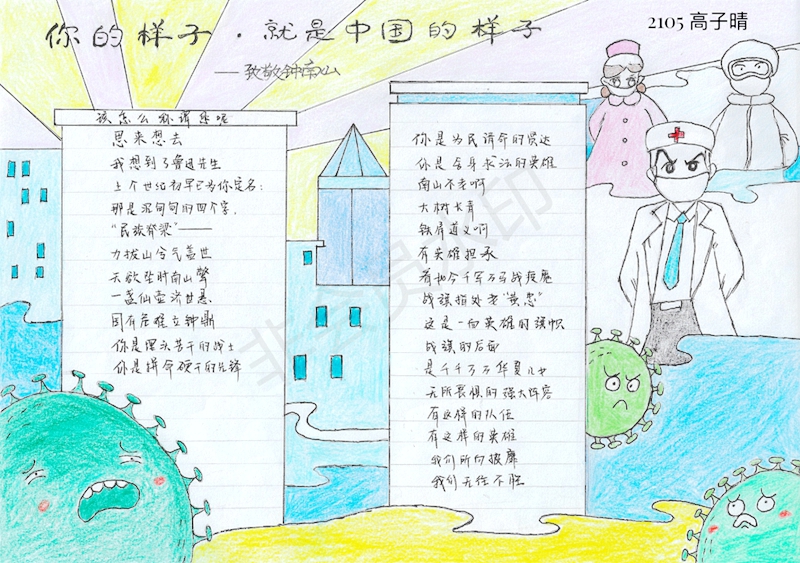 2105 高子晴
你的样子·就是中国的样子
——致敬钟南山
该怎么称谓您呢
思来想去
我想到了鲁迅先生
上个世纪初早已为你定名:
那是沉甸甸的四个字,
“民族脊梁”——
力拔山兮气盖世
天欲坠时南山擎
一盏仙壶济世悬
国有危难立钟鼎
你是埋头苦干的战士
你是拼命硬干的先锋
你是为民请命的贤达
你是舍身求法的英雄
南山不老啊
大树长青
铁肩道义啊
有英雄担承
看如今千军万马战疫魔
战旗指处
这是一面英雄的旗帜
战旗的后面
是千千万万华夏儿女
无所畏惧的强大阵容
有这样的队伍
有这样的英雄
我们所向披靡
我们无往不胜
非会员水印